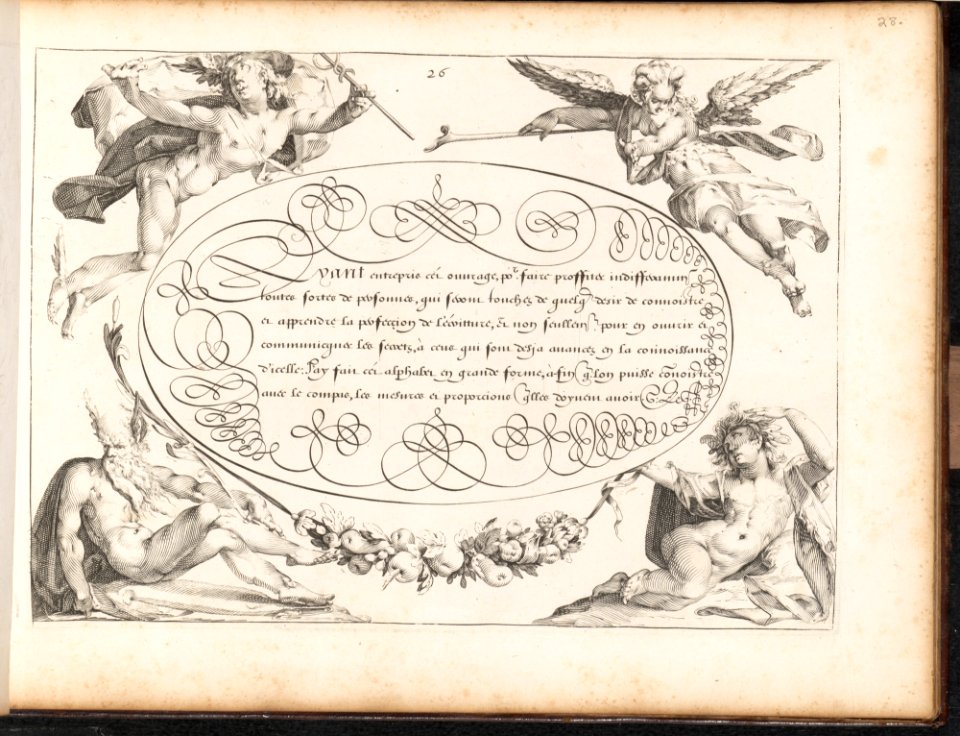 28.
26
Ayant entrepris cet ouurage, po.r faire proffiter indifferamm.t
toutes sortes de personnes, qui seront touchez de quelq desir de connoistre
et apprendre la perfection de l'escritture, et non seullem.t pour en ouurir et
communicquer les secrets, à ceus qui sont desja auancez en la connoissance
d'icelle: J'ay fait cet alphabet en grande forme, à fin q lon puisse conoistre
auec le compas, les mesures et proporcions qlles doyuent auoir